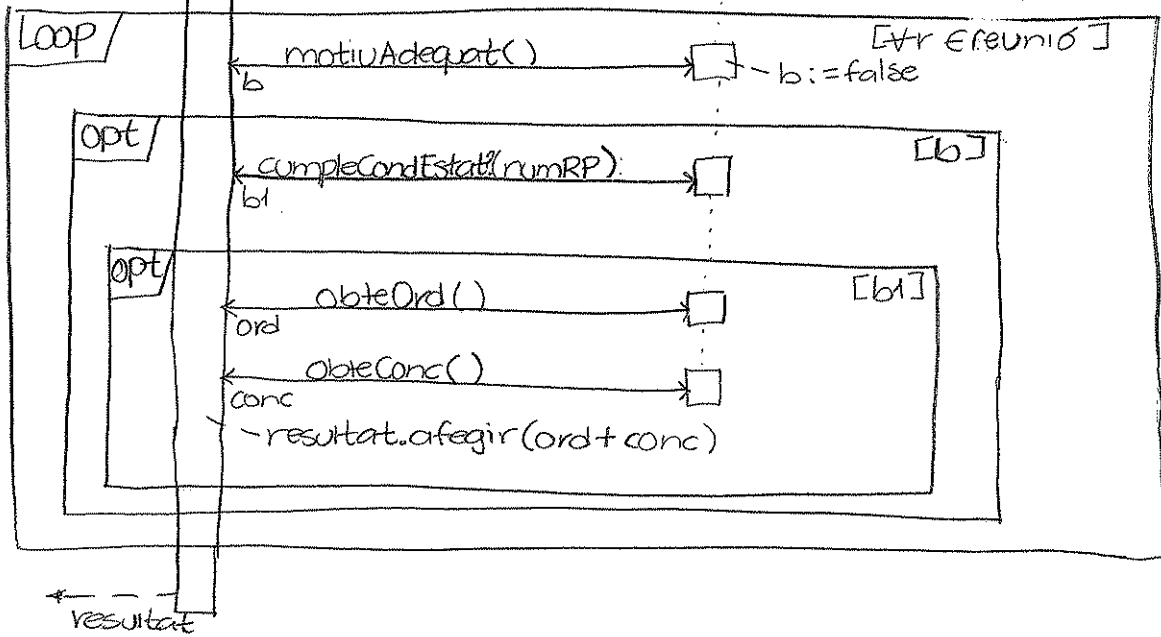 Loop
[∀r ∈ reunió]
motiuAdequat()
b
b:=false
opt
[b]
cumpleCondEstat?(numRP)
b1
opt
[b1]
obteOrd()
ord
obteConc()
conc
resultat.afegir(ord+conc)
resultat